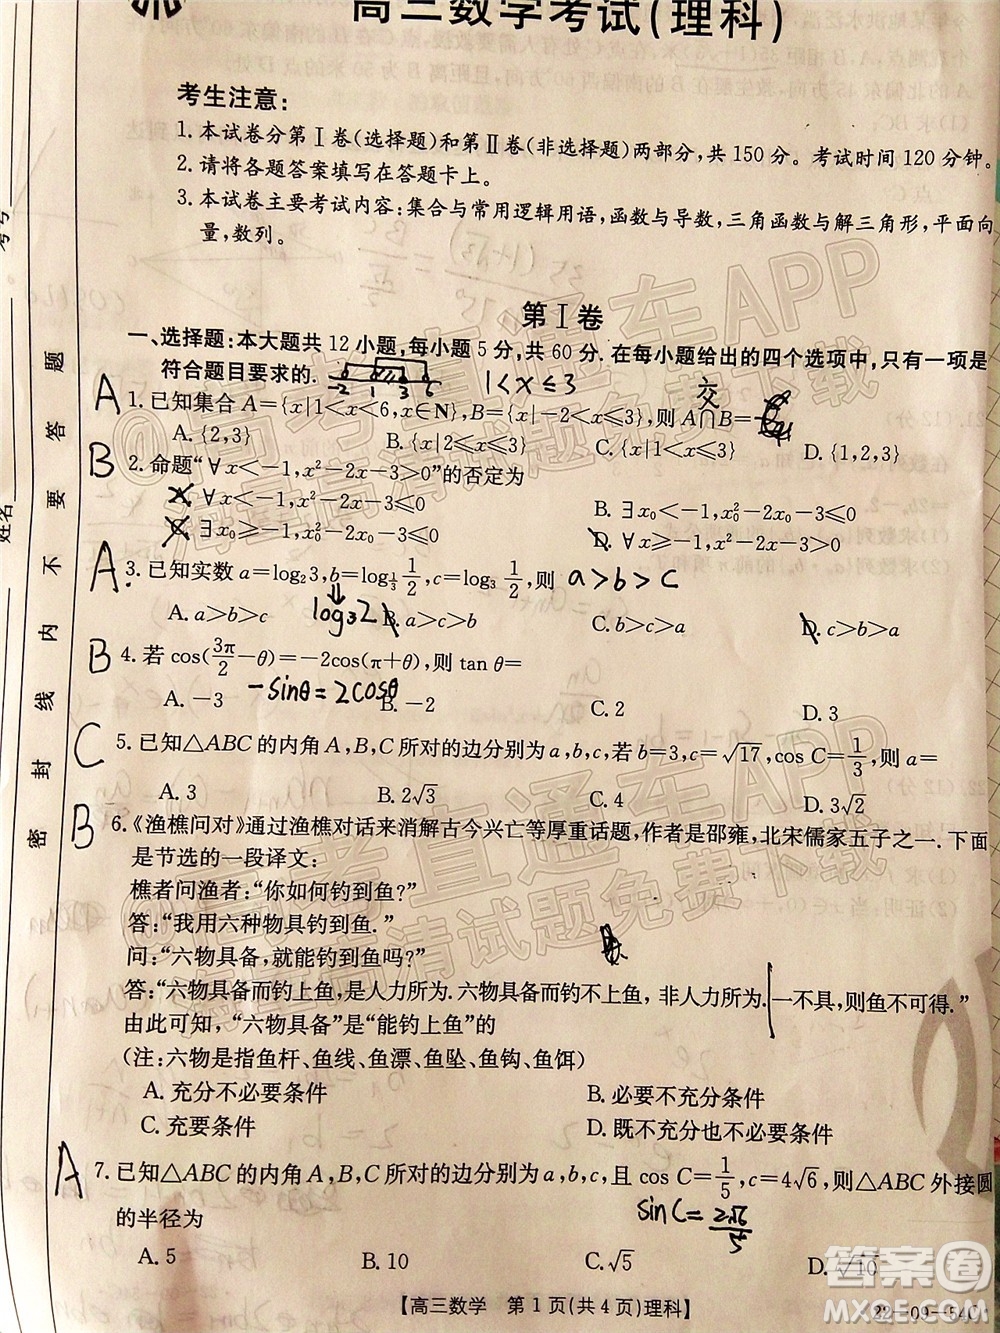 高三数学考试(理科)
考生注意:
1.本试卷分第Ⅰ卷(选择题)和第Ⅱ卷(非选择题)两部分,共150分。考试时间120分钟。
2.请将各题答案填写在答题卡上。
3.本试卷主要考试内容:集合与常用逻辑用语,函数与导数,三角函数与解三角形,平面向
量,数列。
第Ⅰ卷
一、选择题:本大题共12小题,每小题5分,共60分.在每小题给出的四个选项中,只有一项是
符合题目要求的.
-2 1 3 6
1<x≤3
交
A 1.已知集合A={x|1<x<6,x∈N},B={x|-2<x≤3},则A∩B=
A.{2,3} B.{x|2≤x≤3} C.{x|1<x≤3} D.{1,2,3}
B 2.命题“∀x<-1,x²-2x-3>0”的否定为
A.∀x<-1,x²-2x-3≤0 B.∃x₀<-1,x₀²-2x₀-3≤0
C.∃x₀≥-1,x₀²-2x₀-3≤0 D.∀x≥-1,x²-2x-3≤0
A 3.已知实数a=log₂3,b=log_{1/3}(1/2),c=log₃(1/2),则 a>b>c
log₃2
A.a>b>c B.a>c>b C.b>c>a D.b>a>c
B 4.若cos(3π/2-θ)=-2cos(π+θ),则tan θ=
-sinθ=2cosθ
A.-3 B.-2 C.2 D.3
C 5.已知△ABC的内角A,B,C所对的边分别为a,b,c,若b=3,c=√17,cos C=1/3,则a=
A.3 B.2√3 C.4 D.3√2
B 6.《渔樵问对》通过渔樵对话来消解古今兴亡等厚重话题,作者是邵雍,北宋儒家五子之一.下面
是节选的一段译文:
樵者问渔者:“你如何钓到鱼?”
答:“我用六种物具钓到鱼.”
问:“六物具备,就能钓到鱼吗?”
答:“六物具备而钓上鱼,是人力所为.六物具备而钓不上鱼,非人力所为.一不具,则鱼不可得.”
由此可知,“六物具备”是“能钓上鱼”的
(注:六物是指鱼杆、鱼线、鱼漂、鱼坠、鱼钩、鱼饵)
A.充分不必要条件 B.必要不充分条件
C.充要条件 D.既不充分也不必要条件
A 7.已知△ABC的内角A,B,C所对的边分别为a,b,c,且cos C=1/5,c=4√6,则△ABC外接圆
的半径为
sinC=2√6/5
A.5 B.10 C.√5 D.√10
【高三数学 第1页(共4页)理科】
22-09-54C
密 封 线 内 不 要 答 题
姓名
考号
@高考直通车APP
海量高清试题免费下载
@高考直通车APP
海量高清试题免费下载
答案圈
MXQE.COM